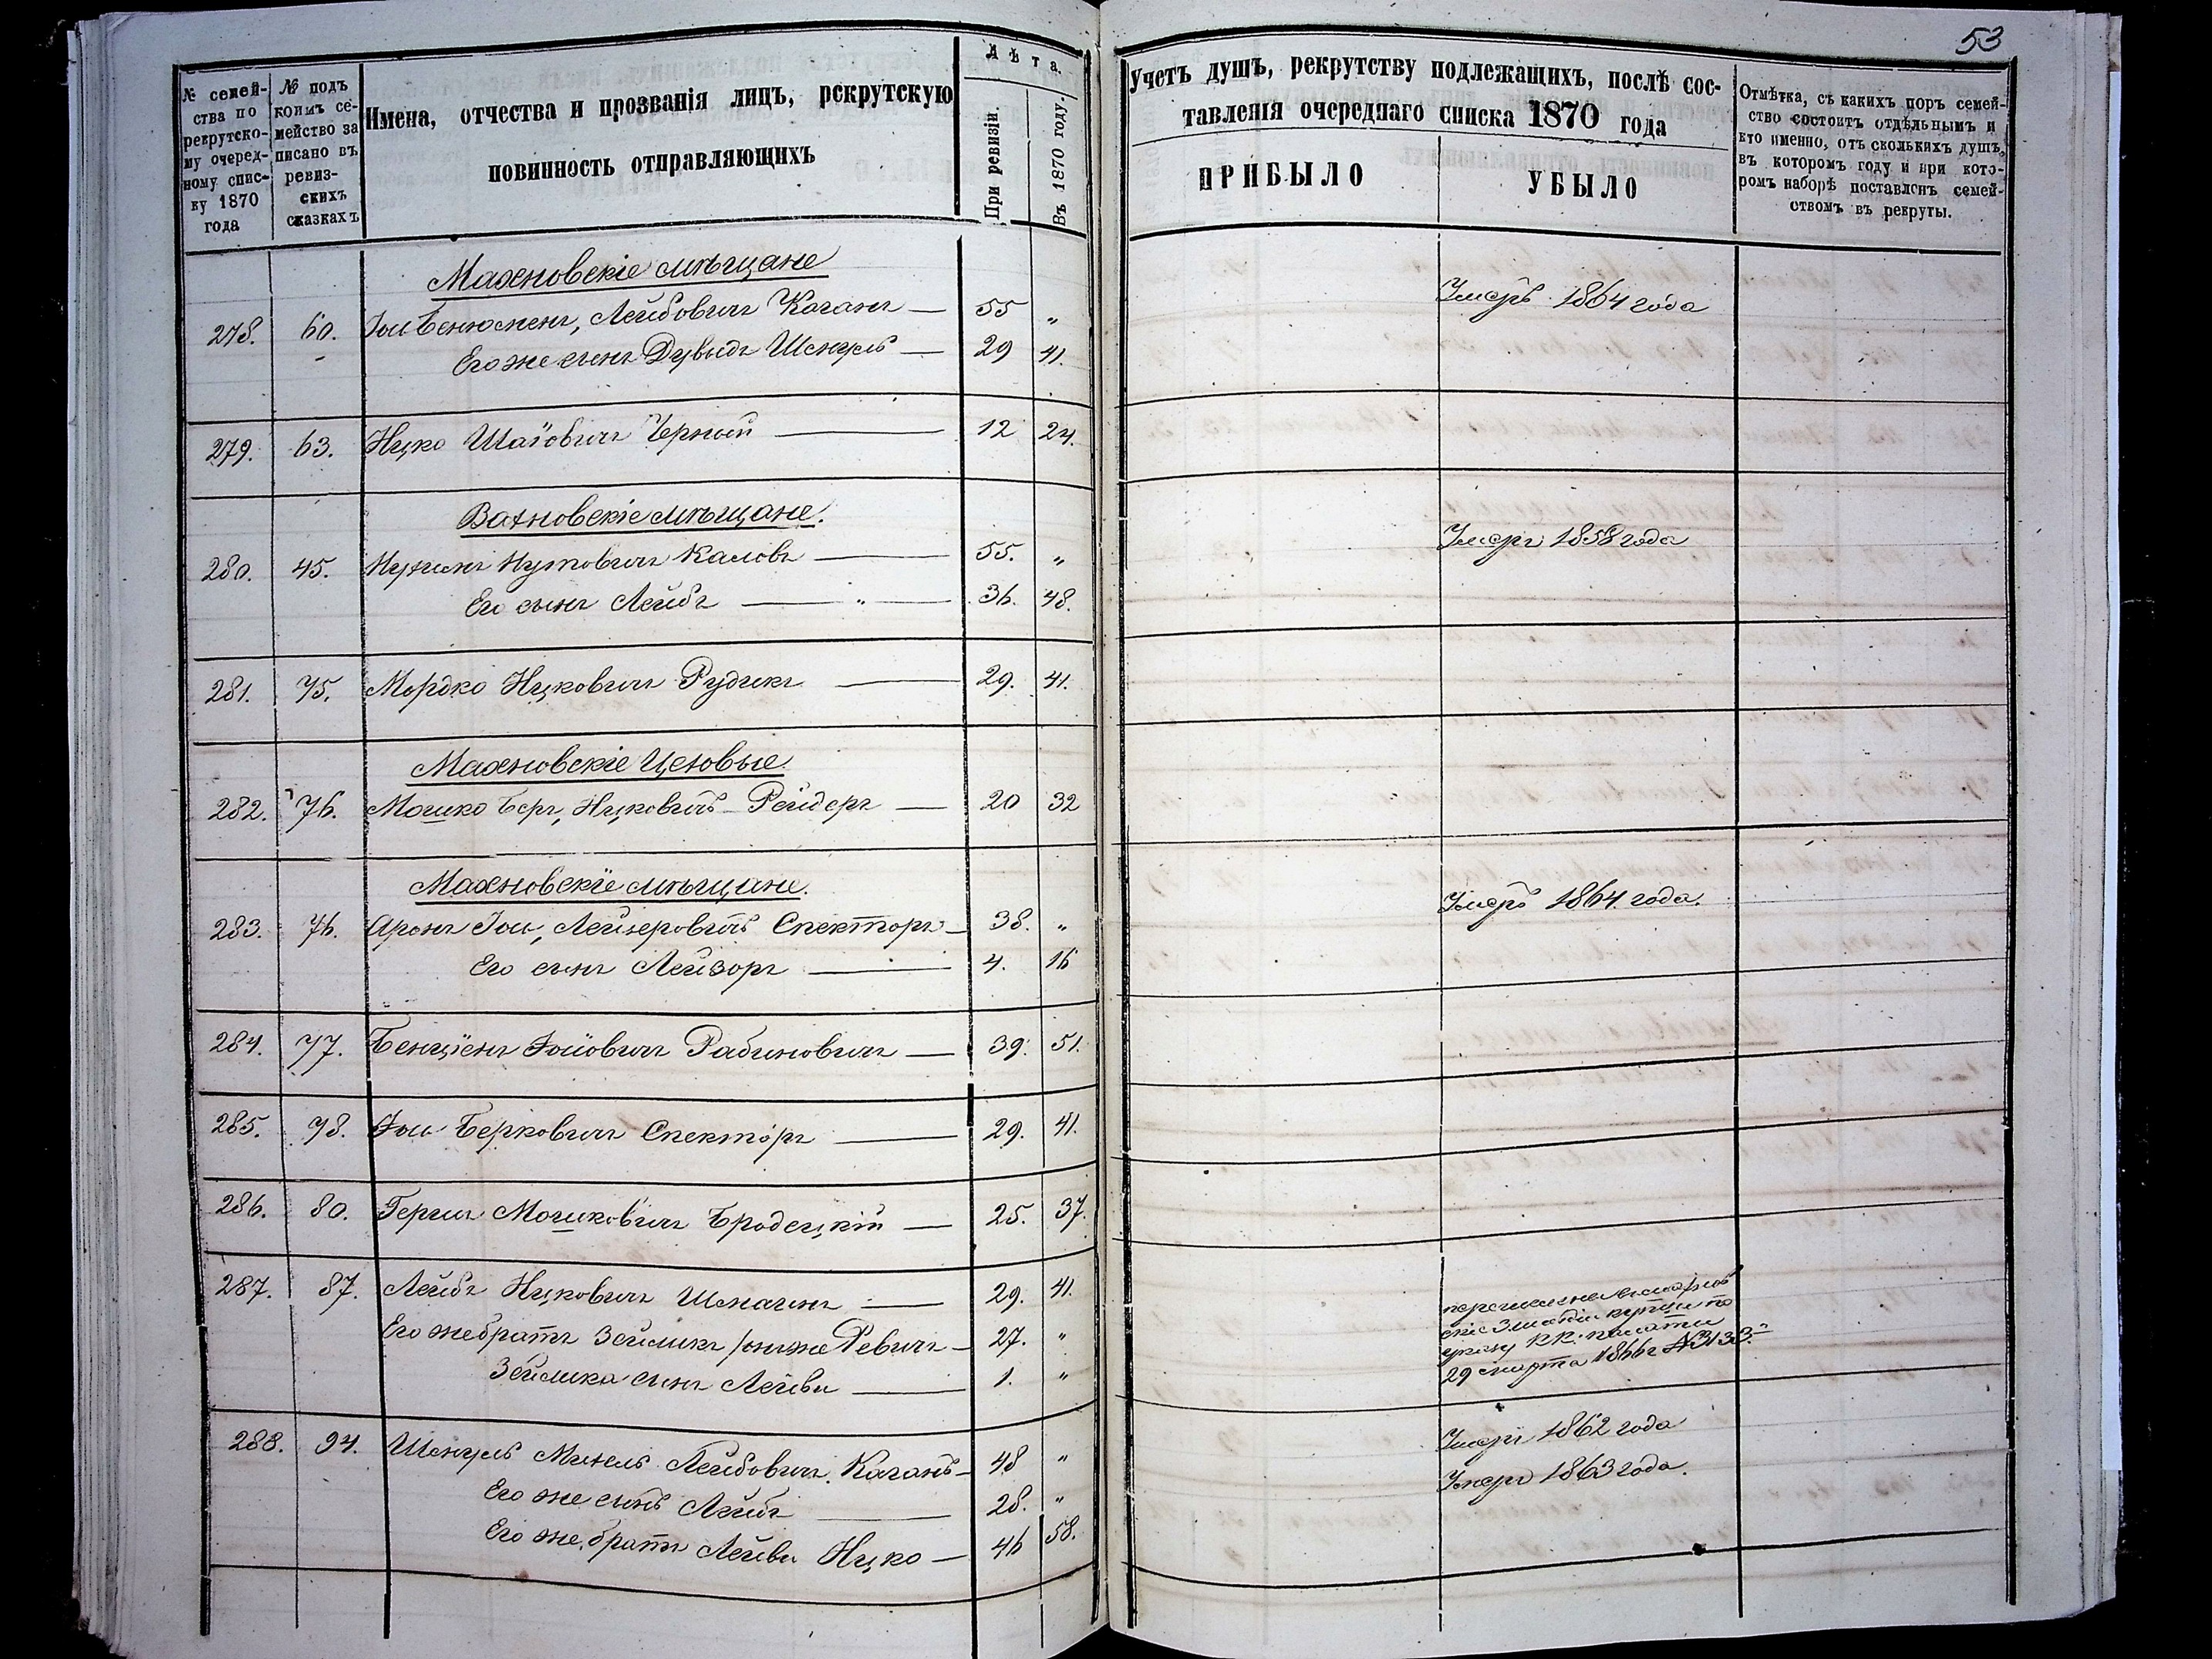 53
№ семей-
ства по
рекрутско-
му очеред-
ному спис-
ку 1870
года
№ подъ
коимъ се-
мейство за
писано въ
ревиз-
скихъ
сказкахъ
Имена, отчества и прозванія лицъ, рекрутскую
повинность отправляющихъ
Лѣта.
При ревизіи.
Въ 1870 году.
Учетъ душъ, рекрутству подлежащихъ, послѣ сос-
тавленія очереднаго списка 1870 года
ПРИБЫЛО
УБЫЛО
Отмѣтка, съ какихъ поръ семей-
ство состоитъ отдѣльнымъ и
кто именно, отъ сколькихъ душъ,
въ которомъ году и при кото-
ромъ наборѣ поставленъ семей-
ствомъ въ рекруты.
Махновскіе мѣщане
278. 60. Іось Бенюменъ, Лейбовичъ Каганъ — 55 „ Умеръ 1864 года
Его же сынъ Дувыдъ Шмуль — 29 41.
279. 63. Ицко Шаіовичъ Черный — 12 24.
Вахновскіе мѣщане.
280. 45. Нухимъ Нутовичъ Каловъ — 55. „ Умеръ 1858 года
Его сынъ Лейбъ — „ — 36. 48.
281. 75. Мордко Ицковичъ Рудикъ — 29. 41.
Махновскіе Цеховые
282. 76. Мошко Беръ, Ицковичъ Рейдеръ — 20 32
Махновскіе мѣщане.
283. 76. Аронъ Іось, Лейзеровичъ Спекторъ — 38. „ Умеръ 1864. года.
Его сынъ Лейзоръ — 4. 16
284. 77. Бенціонъ Іосіовичъ Рабиновичъ — 39. 51.
285. 78. Іось Берковичъ Спекторъ — 29. 41.
286. 80. Гершъ Мошковичъ Бродецкій — 25. 37.
287. 87. Лейбъ Ицковичъ Шмагинъ — 29. 41.
Его же братъ Зейликъ, онъ же Ревичъ — 27. „
Зейлика сынъ Лейви — 1. „
купцы по
указу К.К. палаты
29 марта 1866 г №3133.
288. 94. Шмуль Михель Лейбовичъ Каганъ — 48 „ Умеръ 1862 года
Его же сынъ Лейбъ — 28. „ Умеръ 1863 года.
Его же братъ Лейви Ицко — 46 58.